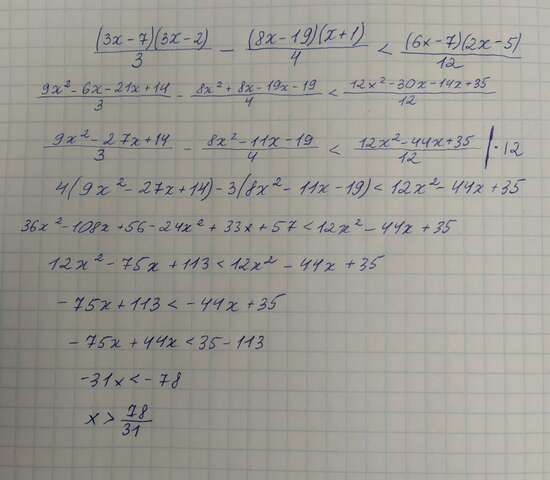 (3x-7)(3x-2)/3 - (8x-19)(x+1)/4 < (6x-7)(2x-5)/12
9x²-6x-21x+14/3 - 8x²+8x-19x-19/4 < 12x²-30x-14x+35/12
9x²-27x+14/3 - 8x²-11x-19/4 < 12x²-44x+35/12 |·12
4(9x²-27x+14)-3(8x²-11x-19)<12x²-44x+35
36x²-108x+56-24x²+33x+57<12x²-44x+35
12x²-75x+113<12x²-44x+35
-75x+113<-44x+35
-75x+44x<35-113
-31x<-78
x>78/31